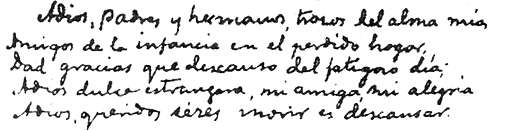 Adios, padres y hermanos, trozos del alma mia,
Amigos de la infancia en el perdido hogar,
Dad gracias que descanso del fatigoso dia;
Adios dulce estrangera, mi amiga mi alegria
Adios, queridos séres morir es descansar.